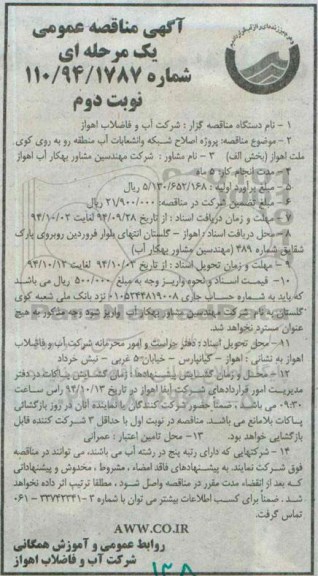 آگهی مناقصه عمومی
یک مرحله ای
شماره ۱۱۰/۹۴/۱۷۸۷
نوبت دوم
۱ - نام دستگاه مناقصه گزار : شرکت آب و فاضلاب اهواز
۲ - موضوع مناقصه: پروژه اصلاح شبکه وانشعابات آب منطقه رو به روی کوی
ملت اهواز (بخش الف) ۳ - نام مشاور : شرکت مهندسین مشاور بهکار آب اهواز
۴ - مدت انجام کار: ۵ ماه
۵ - مبلغ برآورد اولیه : ۵/۱۳۰/۶۵۲/۱۶۸ ریال
۶ - مبلغ تضمین شرکت در مناقصه: ۲۱/۹۰۰/۰۰۰ ریال
۷ - مهلت و زمان دریافت اسناد : از تاریخ ۹۴/۰۹/۲۸ لغایت ۹۴/۱۰/۰۲
۸ - محل دریافت اسناد : اهواز - گلستان انتهای بلوار فروردین روبروی پارک
شقایق شماره ۴۸۹ (مهندسین مشاور بهکار آب)
۹ - مهلت و زمان تحویل اسناد : از تاریخ ۹۴/۱۰/۰۳ لغایت ۹۴/۱۰/۱۳
۱۰- قیمت اسناد و نحوه واریز وجه به مبلغ ۵۰۰/۰۰۰ ریال می باشد
که باید به شماره حساب جاری ۰۱۰۵۳۴۴۸۱۹۰۰۸ نزد بانک ملی شعبه کوی
گلستان به نام شرکت مهندسین مشاور بهکار آب واریز شود وجه مذکور به هیچ
عنوان مسترد نخواهد شد.
۱۱- محل تحویل اسناد : دفتر حراست و امور محرمانه شرکت آب و فاضلاب
اهواز به نشانی : اهواز - کیانپارس - خیابان ۵ غربی - نبش خرداد
۱۲ - محل و زمان گشایش پیشنهادها : زمان گشایش پاکات در دفتر
مدیریت امور قراردادهای شرکت آبفا اهواز در تاریخ ۹۴/۱۰/۱۳ راس ساعت
۰۹:۳۰ می باشد ، ضمناً حضور شرکت کنندگان یا نماینده آنان در روز بازگشائی
پاکات بلامانع می باشد. مناقصه در نوبت اول با حداقل ۳ شرکت کننده قابل
بازگشایی خواهد بود. ۱۳- محل تامین اعتبار : عمرانی
۱۴ - شرکتهایی که دارای رتبه پنج در رشته آب می باشند، می توانند در مناقصه
فوق شرکت نمایند. به پیشنهادهای فاقد امضاء ، مشروط ، مخدوش و پیشنهاداتی
که بعد از انقضاء مدت مقرر در مناقصه واصل شود، مطلقا ترتیب اثر داده نخواهد
شد. ضمناً برای کسب اطلاعات بیشتر می توان با شماره ۳ - ۳۳۷۴۲۳۴۱ - ۰۶۱
تماس گرفت.
AWW.CO.IR
روابط عمومی و آموزش همگانی
شرکت آب و فاضلاب اهواز